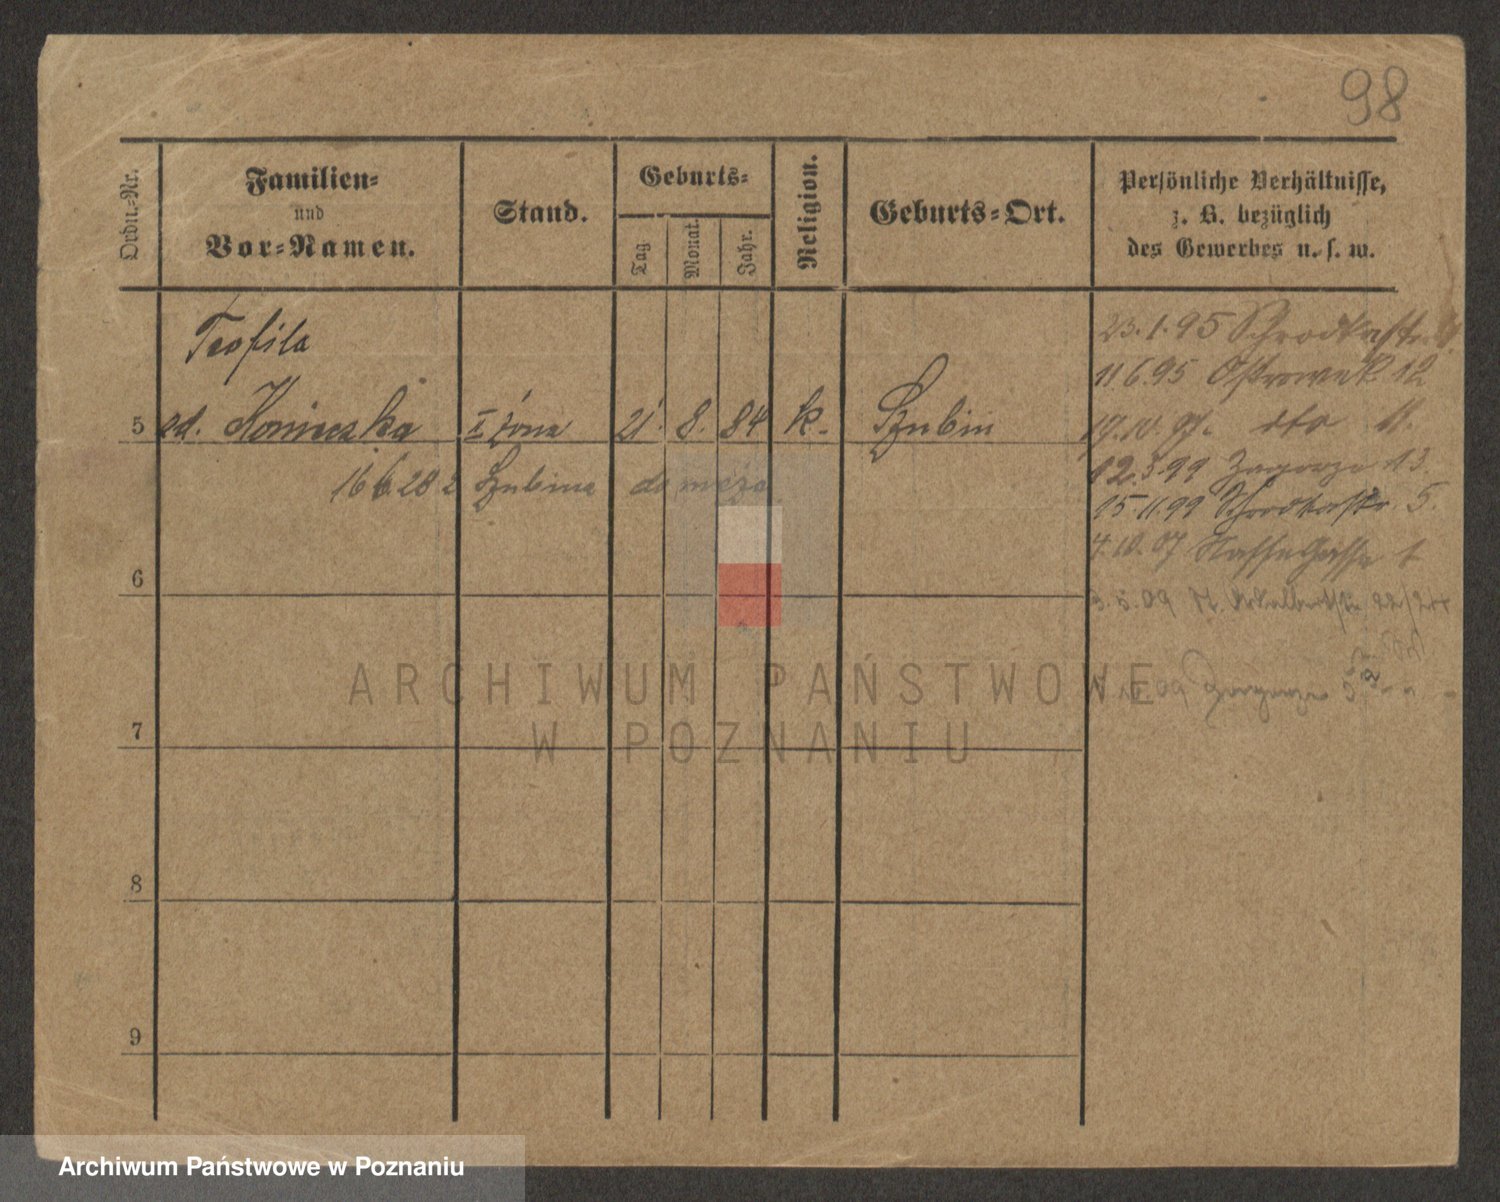 98
Ordn.-Nr.
Familien-
und
Vor-Namen.
Stand.
Geburts-
Tag
Monat.
Jahr.
Religion.
Geburts-Ort.
Persönliche Verhältnisse,
z. B. bezüglich
des Gewerbes u. s. w.
Teofila
5 zd. Konieczka II żona 21. 8. 84 k. Szubin
16 6 28 z Szubina do męża
23.1.95 Schrodkastr.
11.6.95 Ostrowek 12
19.10.97. dto 11.
12.3.99 Zagorze 13.
15.11.99 Schrodkastr. 5.
4.10.07 1
3.5.09 22/24
09 Zagorze
6
7
8
9
ARCHIWUM PAŃSTWOWE
W POZNANIU
Archiwum Państwowe w Poznaniu